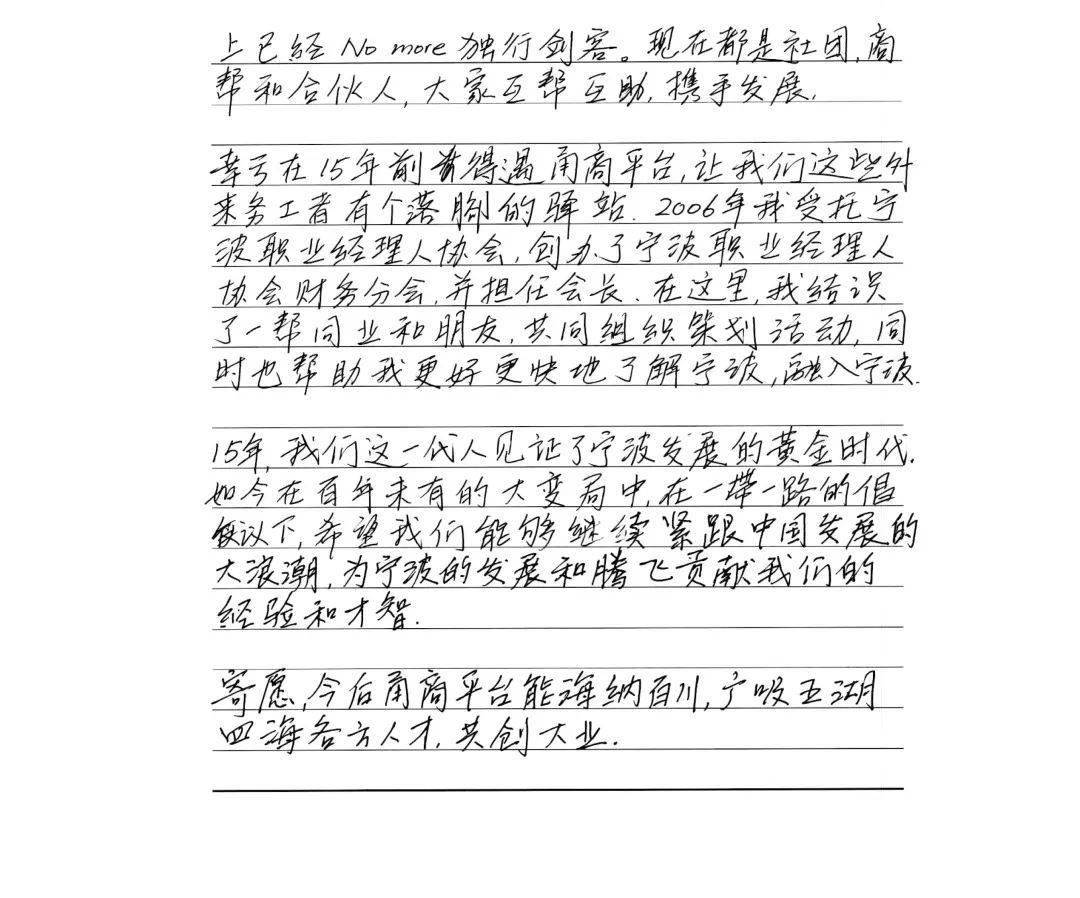 上已经 No more 独行剑客。现在都是社团,商
帮和合伙人,大家互帮互助,携手发展.
幸亏在15年前得遇甬商平台,让我们这些外
来务工者有个落脚的驿站.2006年我受托宁
波职业经理人协会,创办了宁波职业经理人
协会财务分会,并担任会长.在这里,我结识
了一帮同业和朋友,共同组织策划活动,同
时也帮助我更好更快地了解宁波,融入宁波.
15年,我们这一代人见证了宁波发展的黄金时代.
如今在百年未有的大变局中,在一带一路的倡
议以下,希望我们能够继续紧跟中国发展的
大浪潮,为宁波的发展和腾飞贡献我们的
经验和才智.
寄愿,今后甬商平台能海纳百川,广吸五湖
四海各方人才,共创大业.